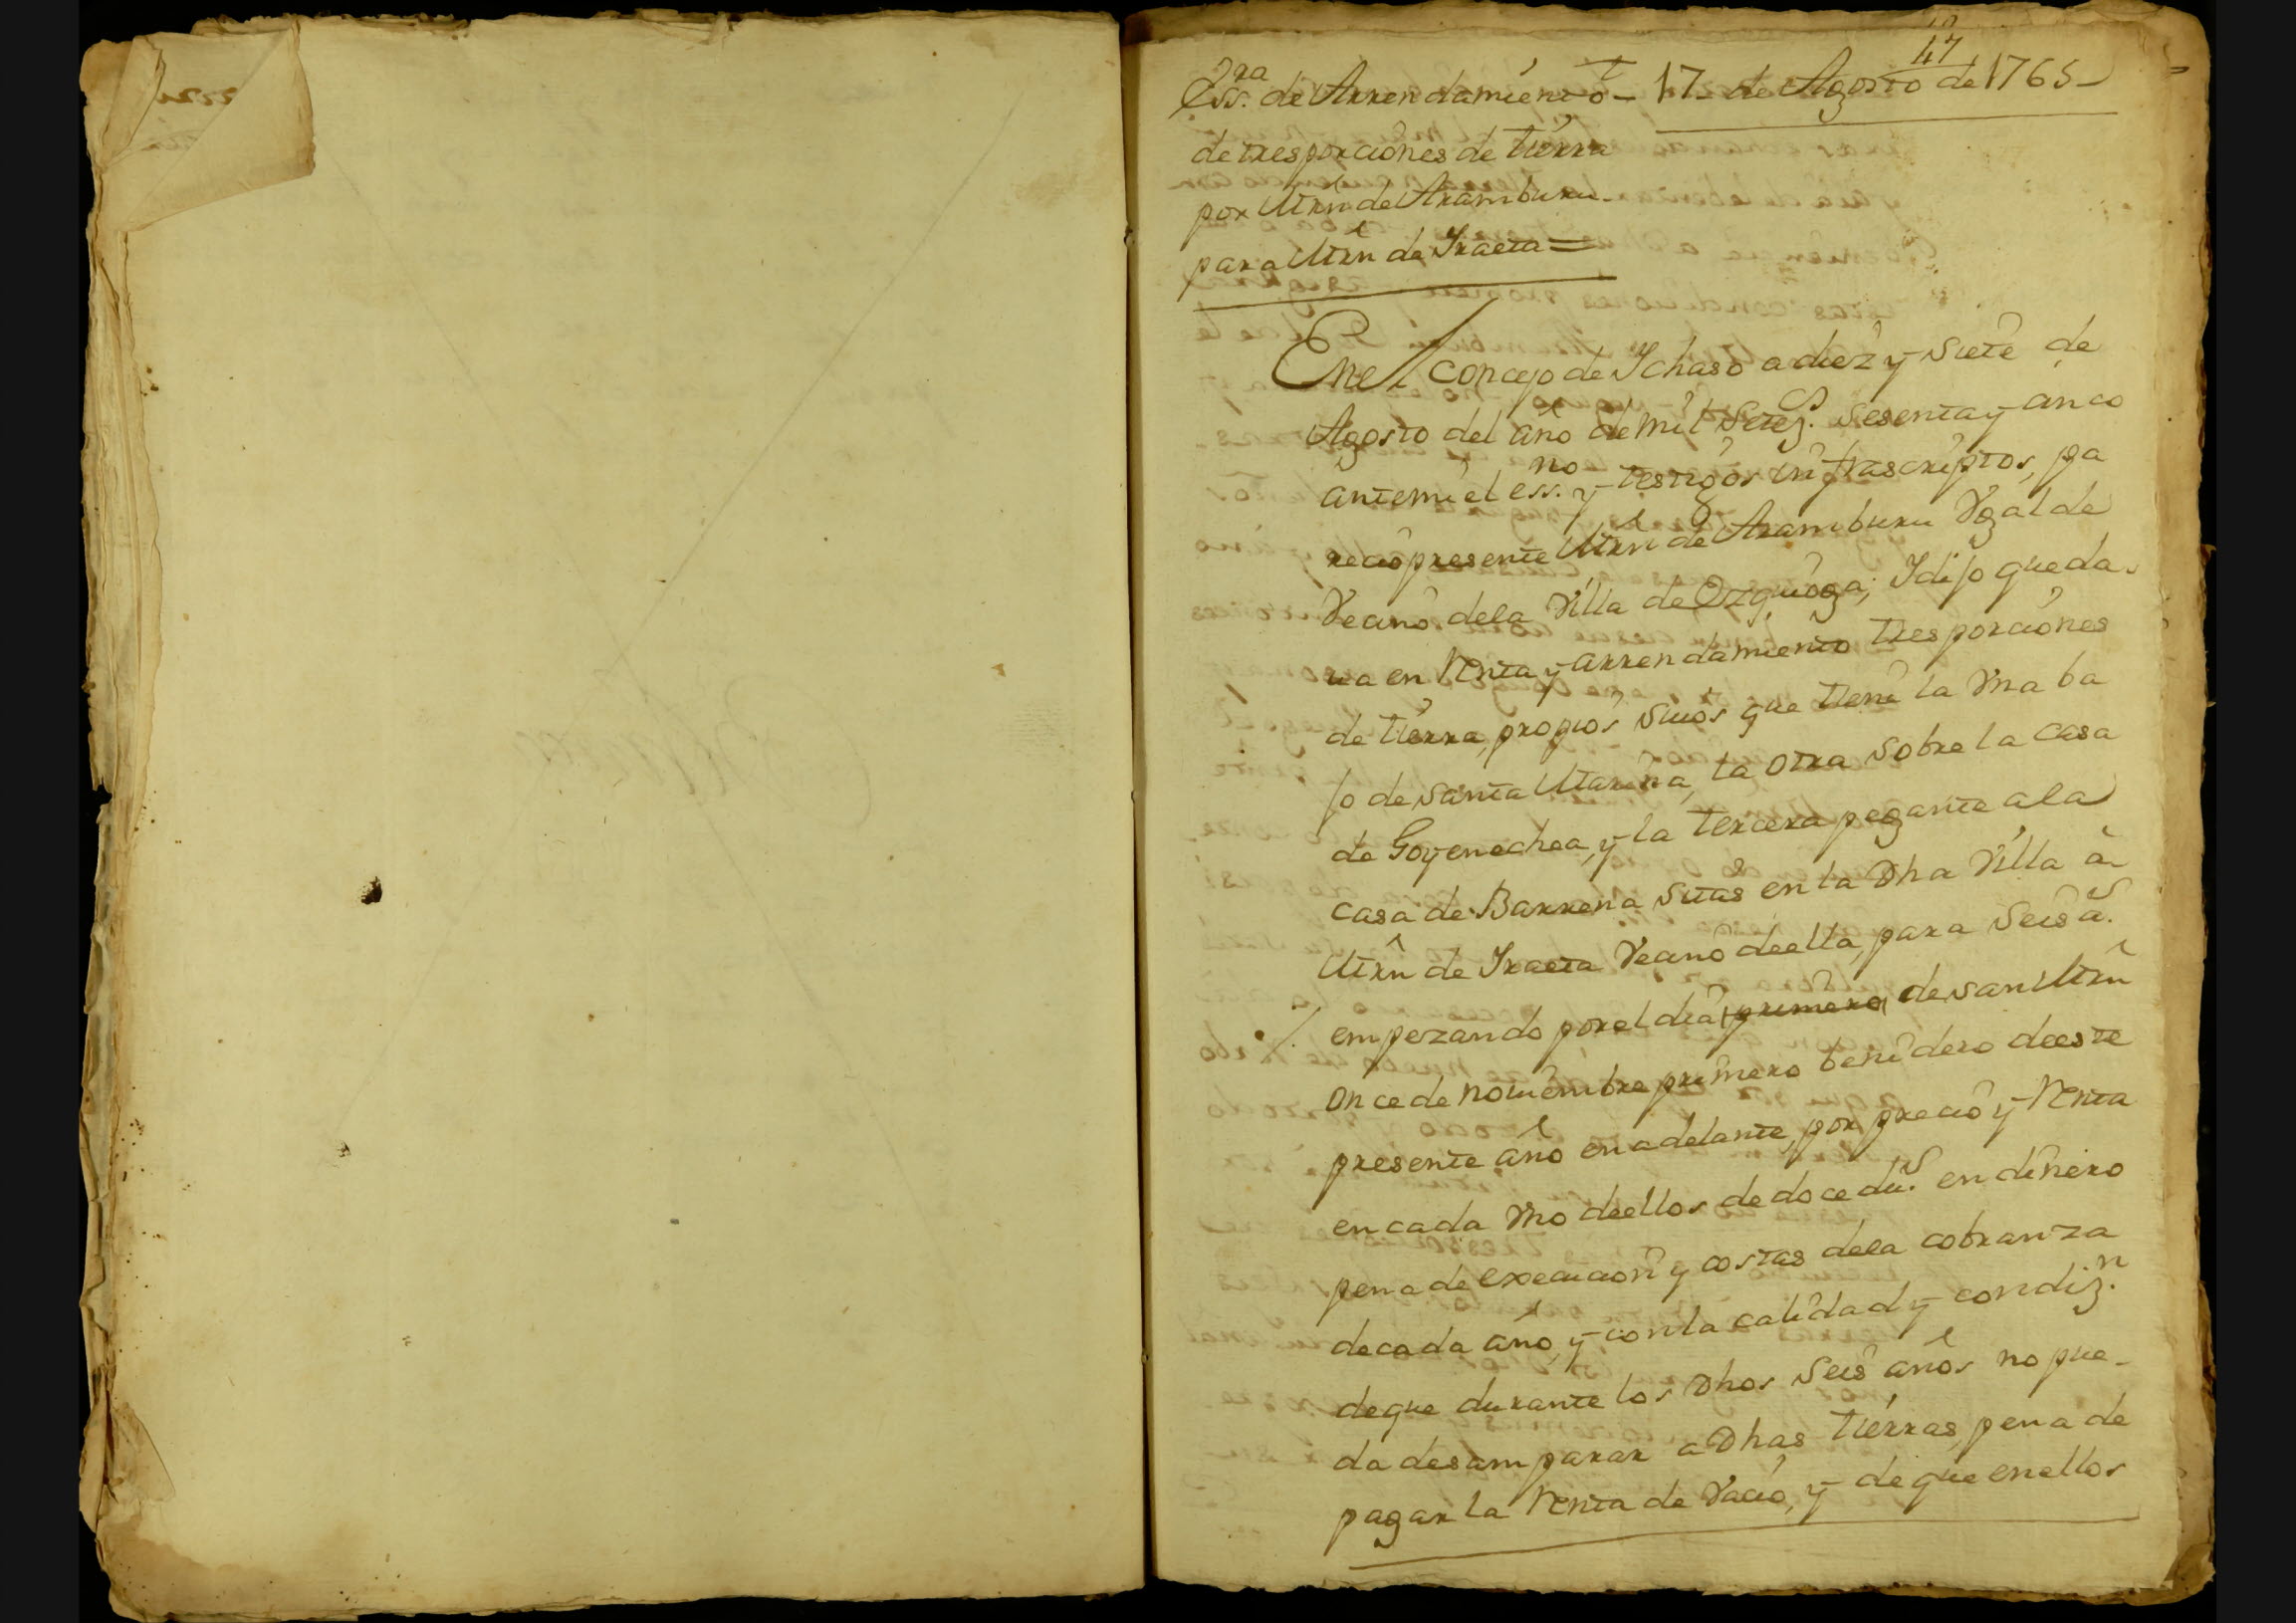 47
Ess.ra de Arrendamiento – 17 de Agosto de 1765 –
de tres porciones de tierra
por Mrn de Aramburu
para Mrn de Iraeta =
En el concejo de Ichaso a diez y siete de
Agosto del año de mil setez.s sesenta y cinco
ante mi el ess.no y testigos infrascriptos, pa
recio presente Mrn de Aramburu Vgalde
Vecino de la Villa de Ezquioga; I dijo que da-
ua en Renta y arrendamiento tres porciones
de tierra, propios suios que tiene la Vna ba
jo de santa Marina, la otra sobre la casa
de Goyenechea, y la tercera pegante a la
casa de Barrena sitas en la Dha Villa a
Mrn de Iraeta Vecino de ella, para seis a.s
empezando por el dia primero de san Mrn
once de nouiembre primero benidero de este
presente año en adelante, por precio y Renta
en cada Vno de ellos de doce du.s en dinero
pena de execucion y costas de la cobranza
de cada año, y con la calidad y condiz.n
de que durante los Dhos seis años no pue-
da desamparar a Dhas tierras, pena de
pagar la Renta de Vacio, y de que en ellos